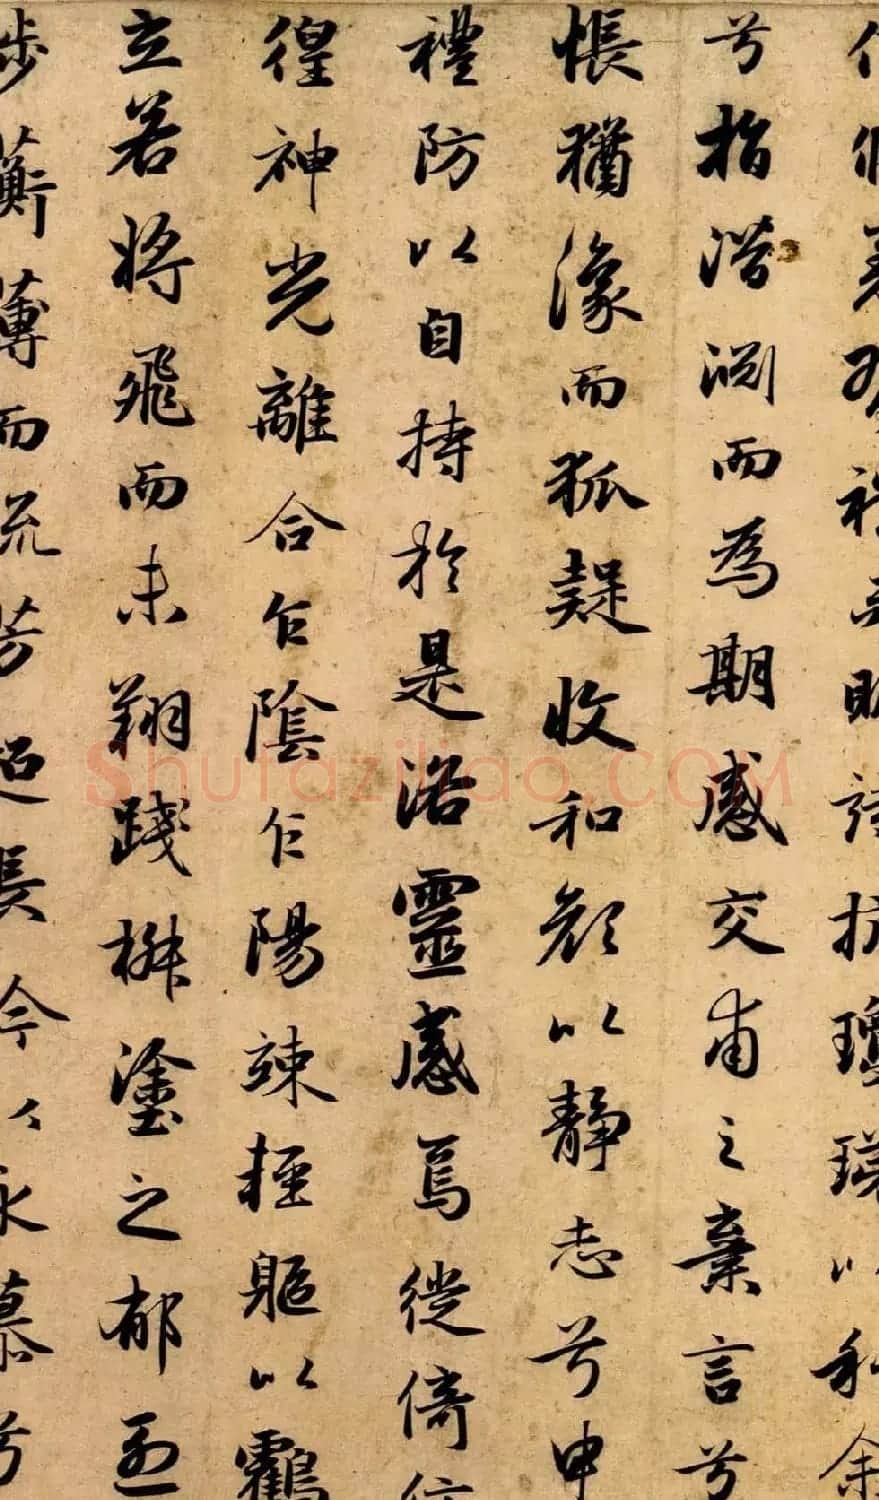 脩羌習禮而明詩抗瓊珶以和余
兮指潛淵而為期感交甫之棄言兮
悵猶豫而狐疑收和顏以靜志兮申
禮防以自持於是洛靈感焉徙倚彷
徨神光離合乍陰乍陽竦輕軀以鶴
立若將飛而未翔踐椒塗之郁烈
步蘅薄而流芳超長吟以永慕兮
Shufaziliao.COM